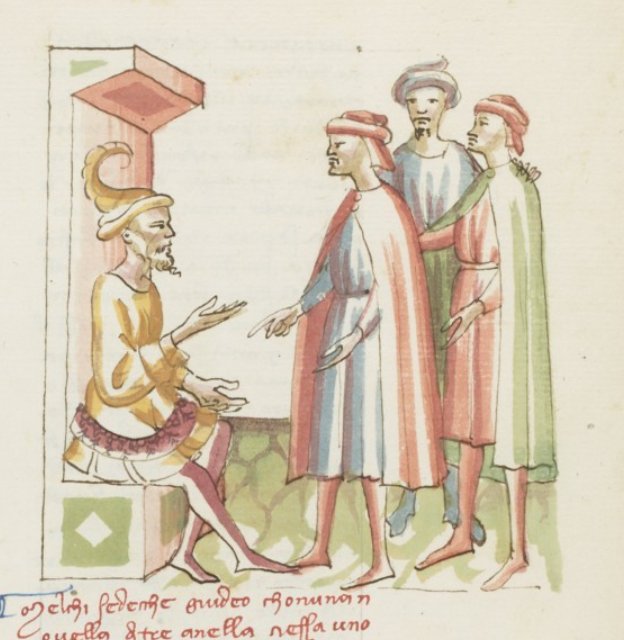 Melchi sedeche giudeo chonuna n
ouella dtre anella cessa uno